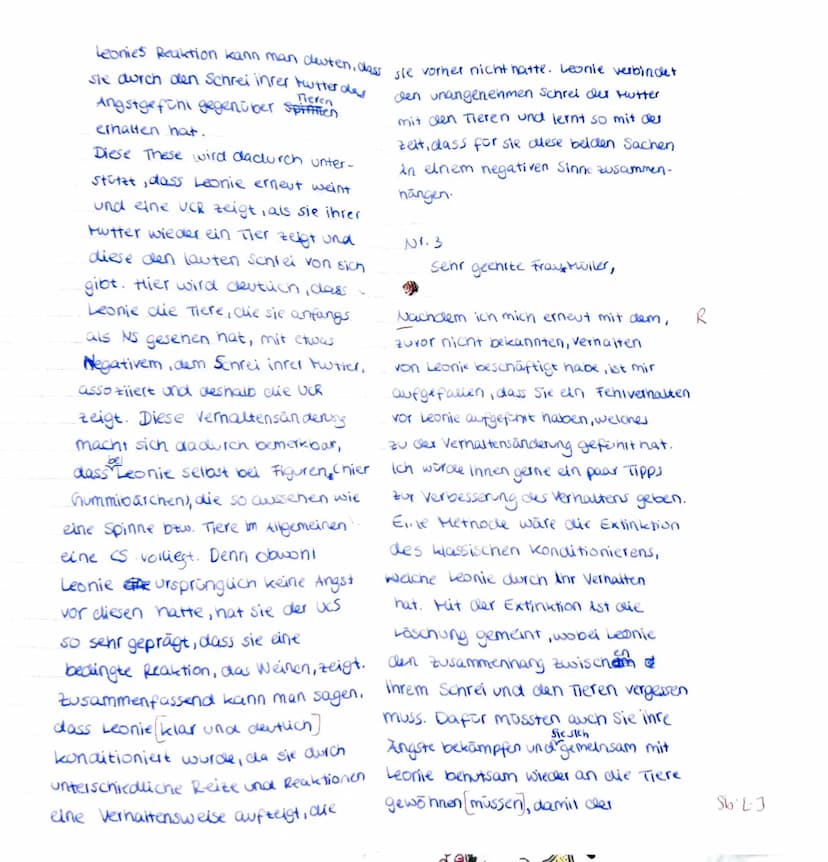 Leonies Reaktion kann man deuten, dass
sie durch den Schrei ihrer Mutter das
Angstgefühl gegenüber Tieren
erhalten hat.
Diese These wird dadurch unter-
stützt, dass Leonie erneut weint
und eine UCR zeigt, als sie ihrer
Mutter wieder ein Tier zeigt und
diese den lauten Schrei von sich
gibt. Hier wird deutlich, dass
Leonie die Tiere, die sie anfangs
als NS gesehen hat, mit etwas
Negativem, dem Schrei ihrer Mutter,
assoziiert und deshalb die UCR
zeigt. Diese Verhaltensänderung
macht sich dadurch bemerkbar,
dass bei Leonie selbst bei Figuren, (hier
Gummibärchen), die so aussehen wie
eine Spinne bzw. Tiere im Allgemeinen
eine CS vorliegt. Denn obwohl
Leonie ursprünglich keine Angst
vor diesen hatte, hat sie der UCS
so sehr geprägt, dass sie eine
bedingte Reaktion, das Weinen, zeigt.
Zusammenfassend kann man sagen,
dass Leonie [klar und deutlich]
konditioniert wurde, da sie durch
unterschiedliche Reize und Reaktionen
eine Verhaltensweise aufzeigt, die
sie vorher nicht hatte. Leonie verbindet
den unangenehmen Schrei der Mutter
mit den Tieren und lernt so mit der
Zeit, dass für sie diese beiden Sachen
in einem negativen Sinne zusammen-
hängen.
Nr. 3
Sehr geehrte Frau Müller,
Nachdem ich mich erneut mit dem, R
zuvor nicht bekannten, Verhalten
von Leonie beschäftigt habe, ist mir
aufgefallen, dass Sie ein Fehlverhalten
vor Leonie aufgeführt haben, welches
zu der Verhaltensänderung geführt hat.
Ich würde Ihnen gerne ein paar Tipps
zur Verbesserung des Verhaltens geben.
Eine Methode wäre die Extinktion
des klassischen Konditionierens,
welche Leonie durch Ihr Verhalten
hat. Mit der Extinktion ist die
Löschung gemeint, wobei Leonie
den Zusammenhang zwischen
Ihrem Schrei und den Tieren vergessen
muss. Dafür müssten auch Sie ihre
Ängste bekämpfen und sie sich gemeinsam mit
Leonie behutsam wieder an die Tiere
gewöhnen [müssen], damit der Sb. [-]